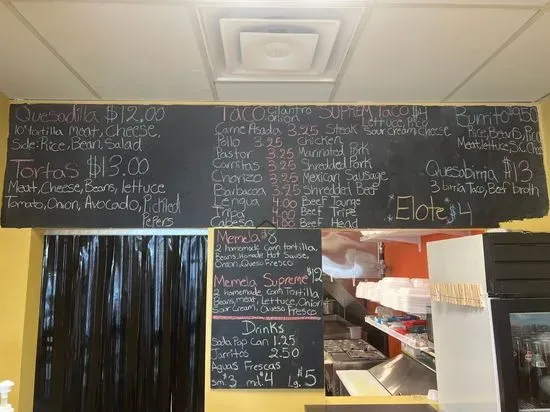 Quesadilla $12.00
10" tortilla Meat, Cheese,
Side: Rice, Bean, Salad
Tortas $13.00
Meat, Cheese, Beans, lettuce
Tomato, Onion, Avocado, Pickled
Pepers
Taco Cilantro
onion
Carne Asada 3.25 Steak
Pollo 3.25 Chicken
Pastor 3.25 Marinated Pork
Carnitas 3.25 Shredded Pork
Chorizo 3.25 Mexican Sausage
Barbacoa 3.25 Shredded Beef
Lengua 4.00 Beef Tounge
Tripa 4.00 Beef Tripe
Cabeso 4.00 Beef Head
Suprem Taco $4
Lettuce, Pico
Sour Cream, Cheese
Burrito $9.50
Rice, Beans, Pico
Meat, lettuce, S.C, Chee
Quesabirria $13
3 birria Taco, Beef broth
Elote $4
Memela $8
2 homemade corn tortilla,
Beans, Homade Hot Sauce,
Onion, Queso Fresco
Memela Supreme $12
2 homemade corn Tortilla
Beans, meat, Lettuce, Onion
Sour Cream, Queso Fresco
Drinks
Soda Pop Can 1.25
Jarritos 2.50
Aguas Frescas
Sm. $3 md. $4 Lg. $5